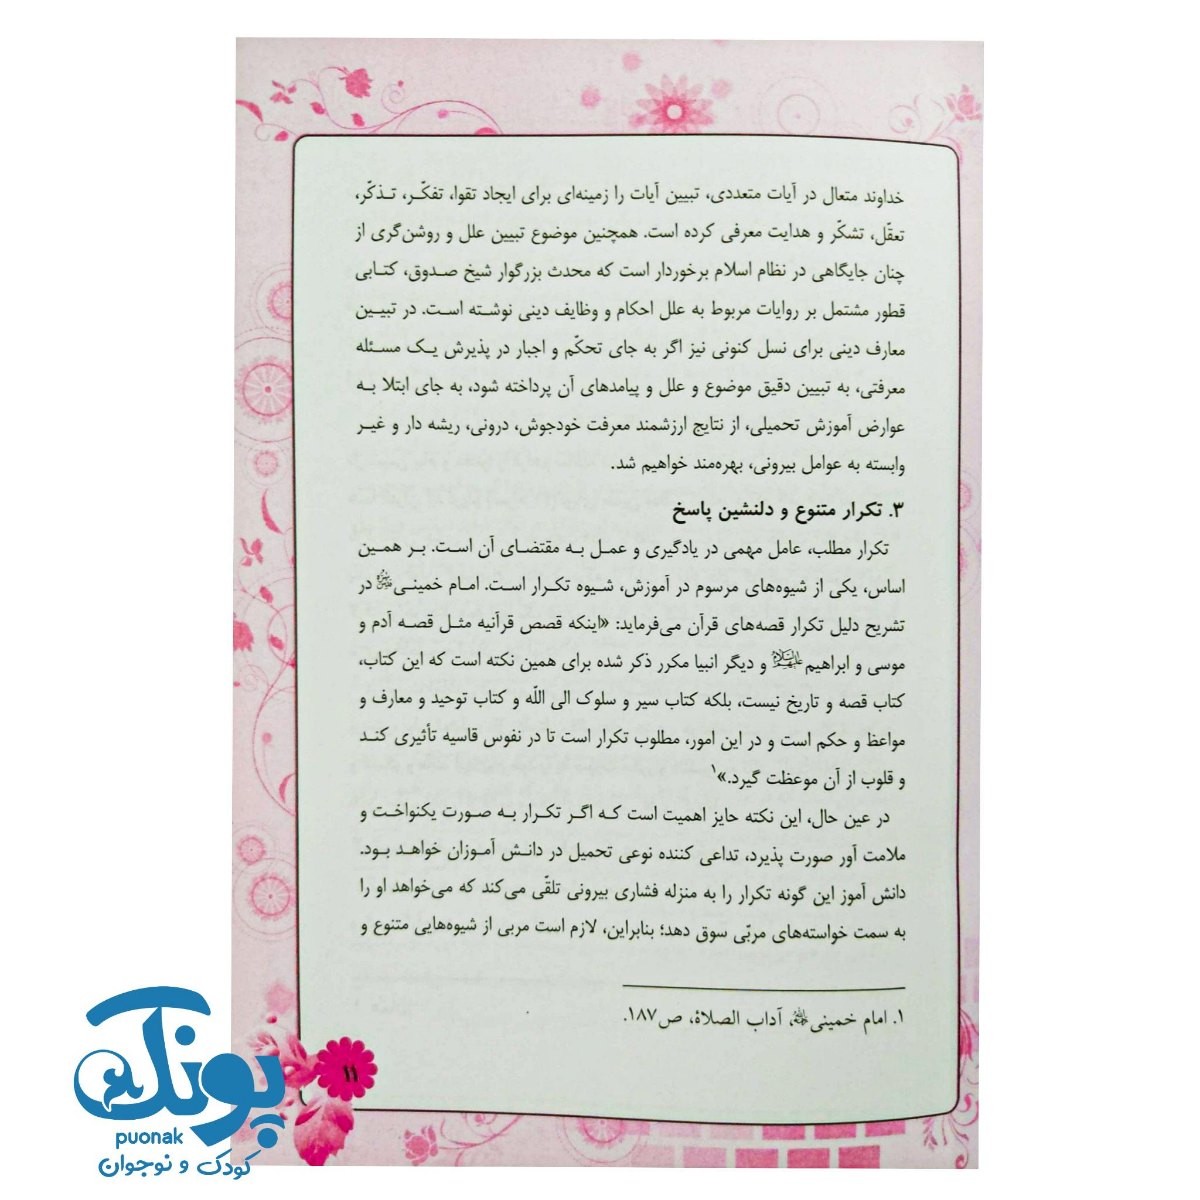 خداوند متعال در آیات متعددی، تبیین آیات را زمینه‌ای برای ایجاد تقوا، تفکّر، تذکّر،
تعقّل، تشکّر و هدایت معرفی کرده است. همچنین موضوع تبیین علل و روشن‌گری از
چنان جایگاهی در نظام اسلام برخوردار است که محدث بزرگوار شیخ صدوق، کتابی
قطور مشتمل بر روایات مربوط به علل احکام و وظایف دینی نوشته است. در تبیین
معارف دینی برای نسل کنونی نیز اگر به جای تحکّم و اجبار در پذیرش یک مسئله
معرفتی، به تبیین دقیق موضوع و علل و پیامدهای آن پرداخته شود، به جای ابتلا به
عوارض آموزش تحمیلی، از نتایج ارزشمند معرفت خودجوش، درونی، ریشه دار و غیر
وابسته به عوامل بیرونی، بهره‌مند خواهیم شد.
۳. تکرار متنوع و دلنشین پاسخ
تکرار مطلب، عامل مهمی در یادگیری و عمل به مقتضای آن است. بر همین
اساس، یکی از شیوه‌های مرسوم در آموزش، شیوه تکرار است. امام خمینی در
تشریح دلیل تکرار قصه‌های قرآن می‌فرماید: «اینکه قصص قرآنیه مثل قصه آدم و
موسی و ابراهیم و دیگر انبیا مکرر ذکر شده برای همین نکته است که این کتاب،
کتاب قصه و تاریخ نیست، بلکه کتاب سیر و سلوک الی اللّه و کتاب توحید و معارف و
مواعظ و حکم است و در این امور، مطلوب تکرار است تا در نفوس قاسیه تأثیری کند
و قلوب از آن موعظت گیرد.»۱
در عین حال، این نکته حایز اهمیت است که اگر تکرار به صورت یکنواخت و
ملامت آور صورت پذیرد، تداعی کننده نوعی تحمیل در دانش آموزان خواهد بود.
دانش آموز این گونه تکرار را به منزله فشاری بیرونی تلقّی می‌کند که می‌خواهد او را
به سمت خواسته‌های مربّی سوق دهد؛ بنابراین، لازم است مربی از شیوه‌هایی متنوع و
۱. امام خمینی، آداب الصلاة، ص۱۸۷.
۱۱
پونک
puonak
کودک و نوجوان